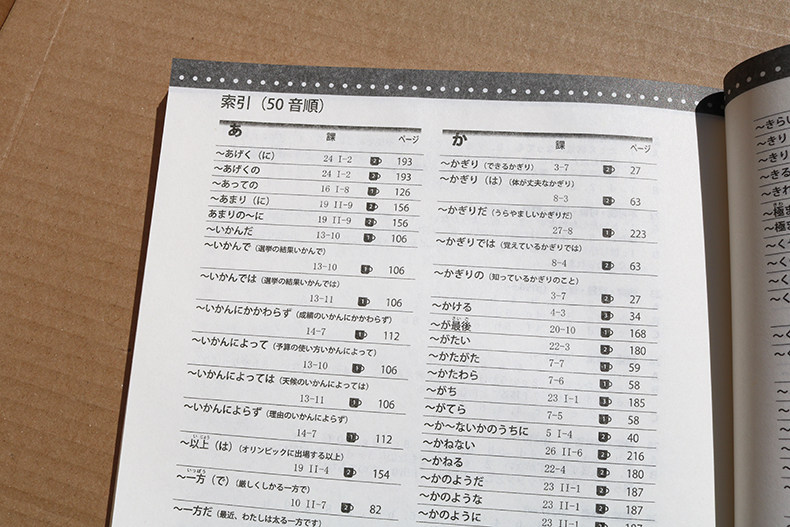 索引（50音順）
あ 課 ページ
～あげく（に） 24 I-2 2 193
～あげくの 24 I-2 2 193
～あっての 16 I-8 1 126
～あまり（に） 19 II-9 2 156
あまりの～に 19 II-9 2 156
～いかんだ 13-10 1 106
～いかんで（選挙の結果いかんで）
13-10 1 106
～いかんでは（選挙の結果いかんでは）
13-11 1 106
～いかんにかかわらず（成績のいかんにかかわらず）
14-7 1 112
～いかんによって（予算の使い方いかんによって）
13-10 1 106
～いかんによっては（天候のいかんによっては）
13-11 1 106
～いかんによらず（理由のいかんによらず）
14-7 1 112
～以上（は）（オリンピックに出場する以上）
19 II-4 2 154
～一方（で）（厳しくしかる一方で）
10 II-7 2 82
～一方だ（最近、わたしは太る一方です）
か 課 ページ
～かぎり（できるかぎり） 3-7 2 27
～かぎり（は）（体が丈夫なかぎり）
8-3 2 63
～かぎりだ（うらやましいかぎりだ）
27-8 1 223
～かぎりでは（覚えているかぎりでは）
8-4 2 63
～かぎりの（知っているかぎりのこと）
3-7 2 27
～かける 4-3 34
～が最後 20-10 1 168
～がたい 22-3 2 180
～かたがた 7-7 1 59
～かたわら 7-6 1 58
～がち 23 I-1 185
～がてら 7-5 1 58
～か～ないかのうちに 5 I-4 2 40
～かねない 26 II-6 2 216
～かねる 22-4 2 180
～かのようだ 23 II-1 2 187
～かのような 23 II-1 2 187
～かのように 23 II-1 2 187
～きらい
～きり
～きり
～きる
～きれ
～極ま
～極ま
～く
～く
～く
～く